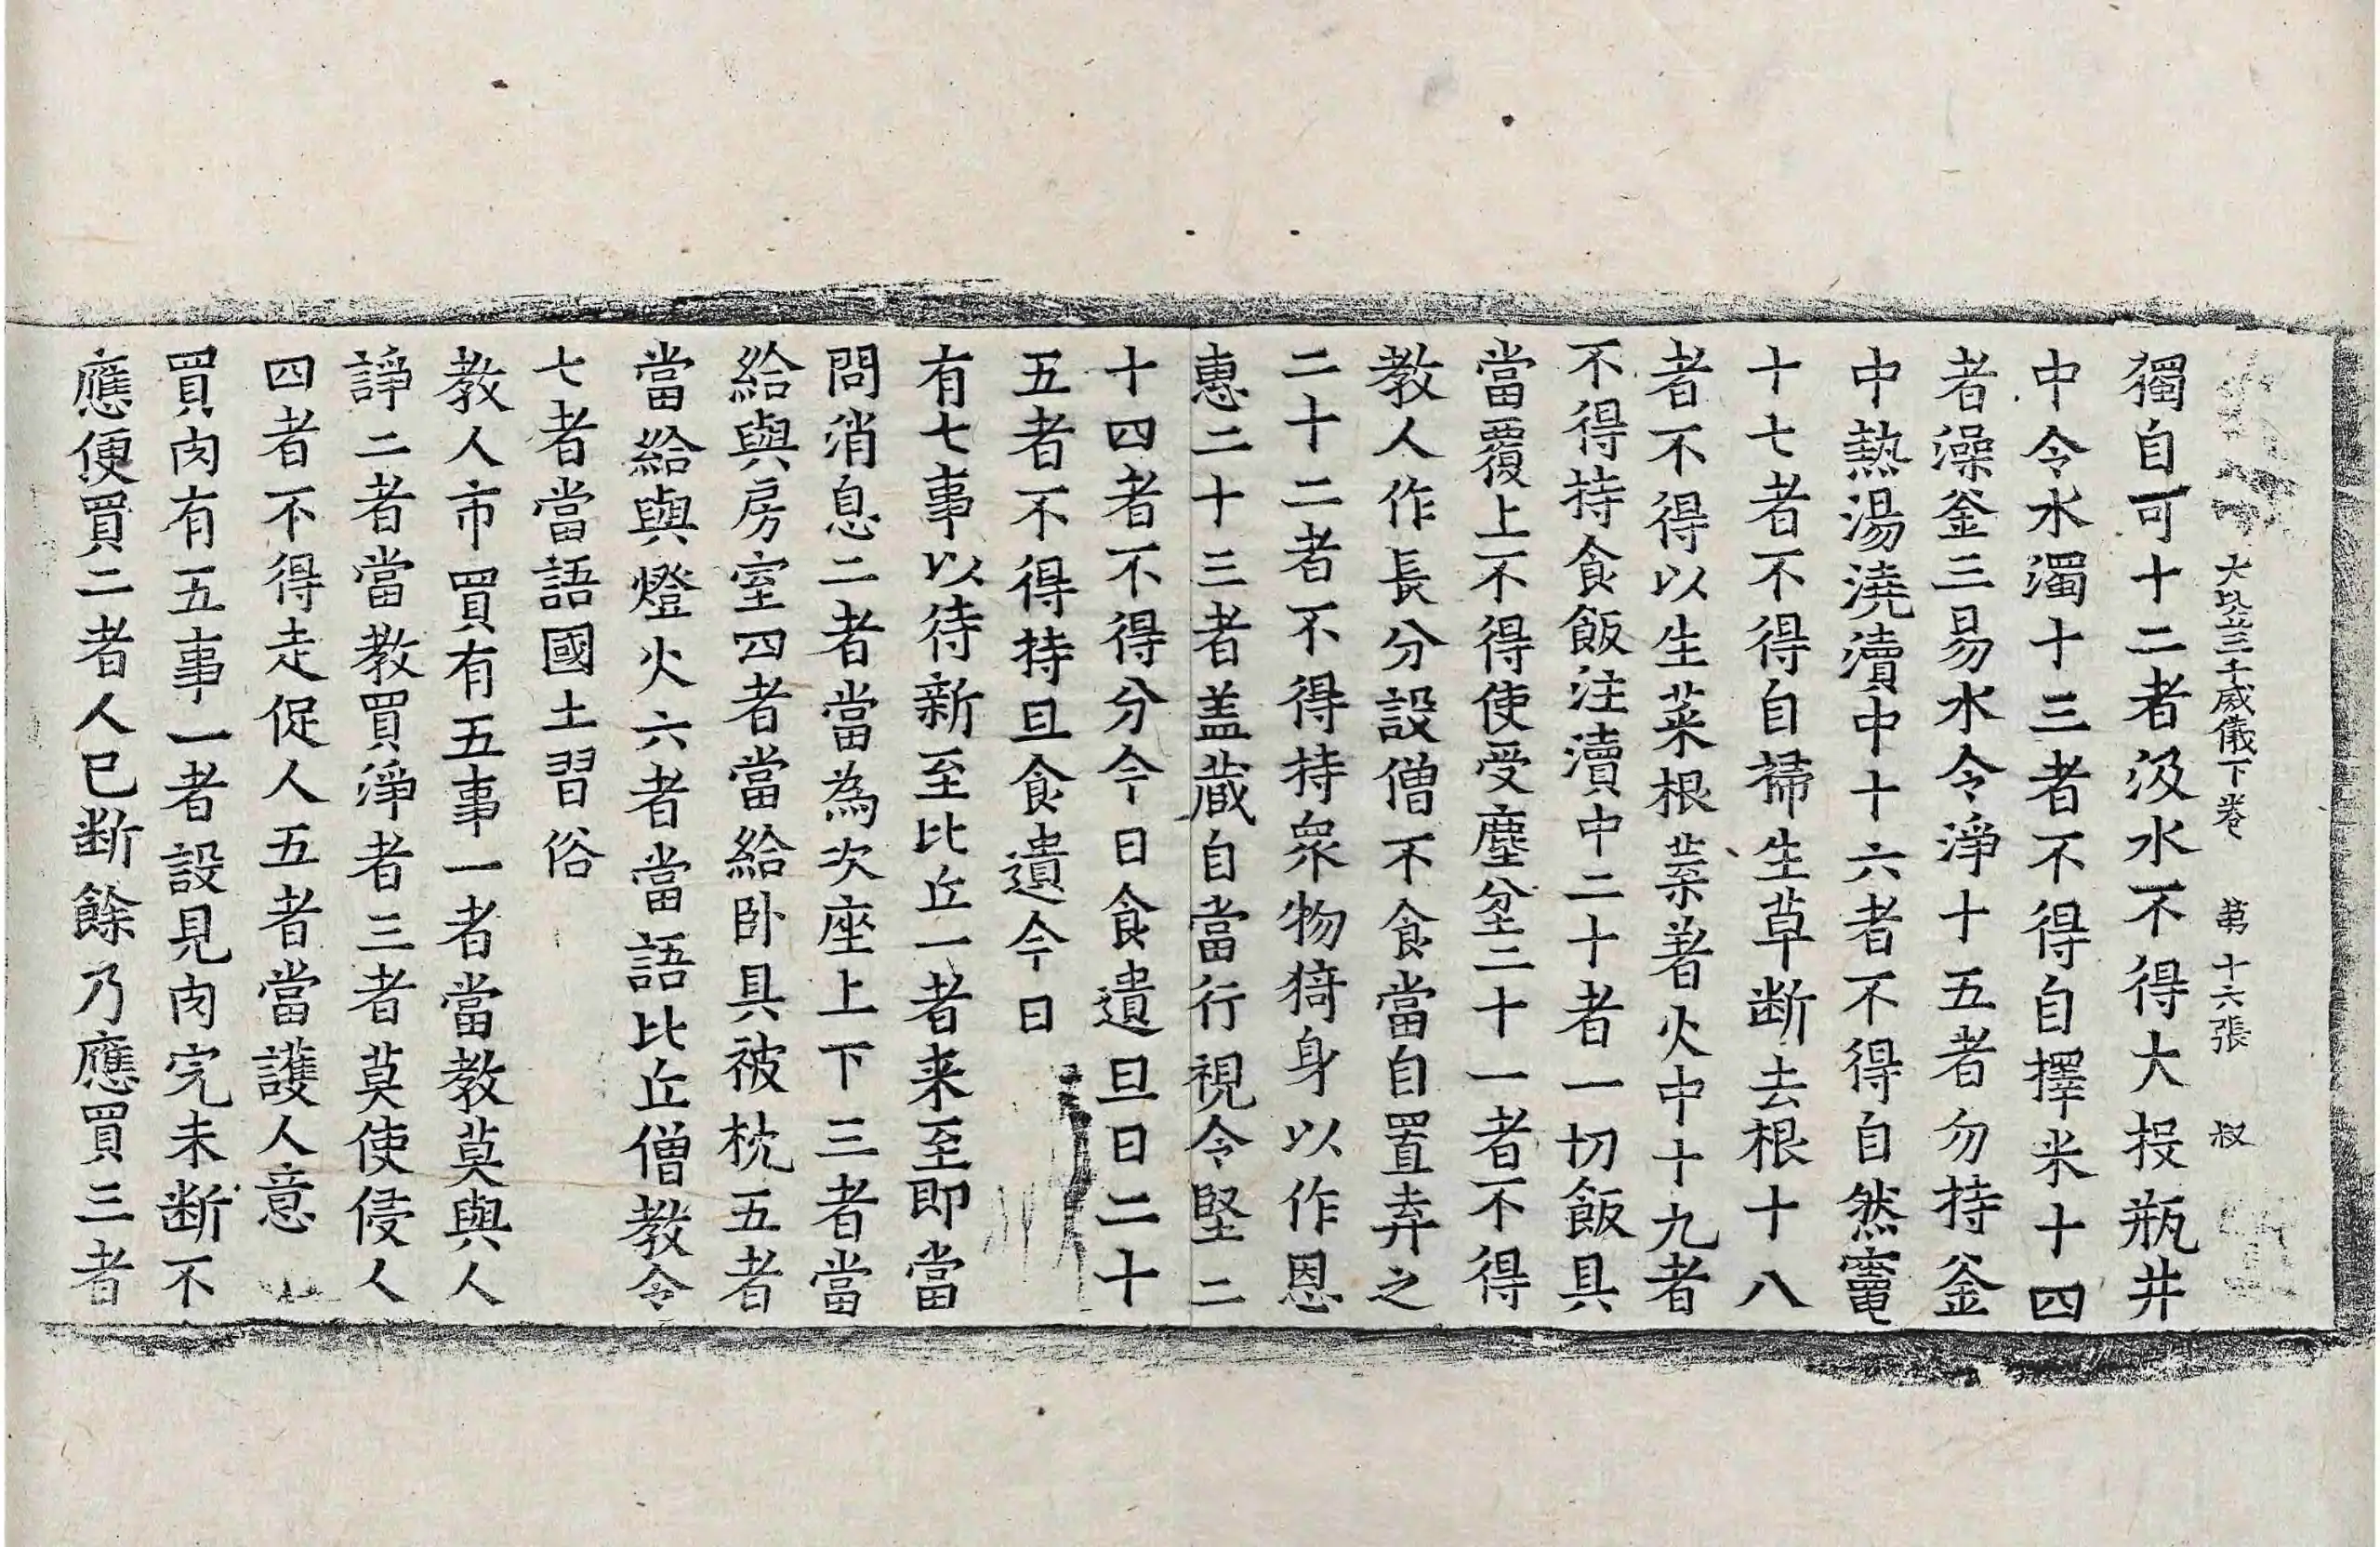 大比丘三千威儀下卷 第十六張 叔
獨自可十二者汲水不得大投瓶井
中令水濁十三者不得自擇米十四
者澡釜三易水令淨十五者勿持釜
中熱湯澆瀆中十六者不得自然竈
十七者不得自掃生草断去根十八
者不得以生菜根葉著火中十九者
不得持食飯注瀆中二十者一切飯具
當覆上不得使受塵坌二十一者不得
教人作長分設僧不食當自置弃之
二十二者不得持衆物猗身以作恩
惠二十三者盖蔵自當行視令堅二
十四者不得分今日食遺旦日二十
五者不得持旦食遺今日
有七事以待新至比丘一者来至即當
問消息二者當為次座上下三者當
給與房室四者當給卧具被枕五者
當給與燈火六者當語比丘僧教令
七者當語國土習俗
教人市買有五事一者當教莫與人
諍二者當教買淨者三者莫使侵人
四者不得走促人五者當護人意
買肉有五事一者設見肉完未断不
應便買二者人已断餘乃應買三者